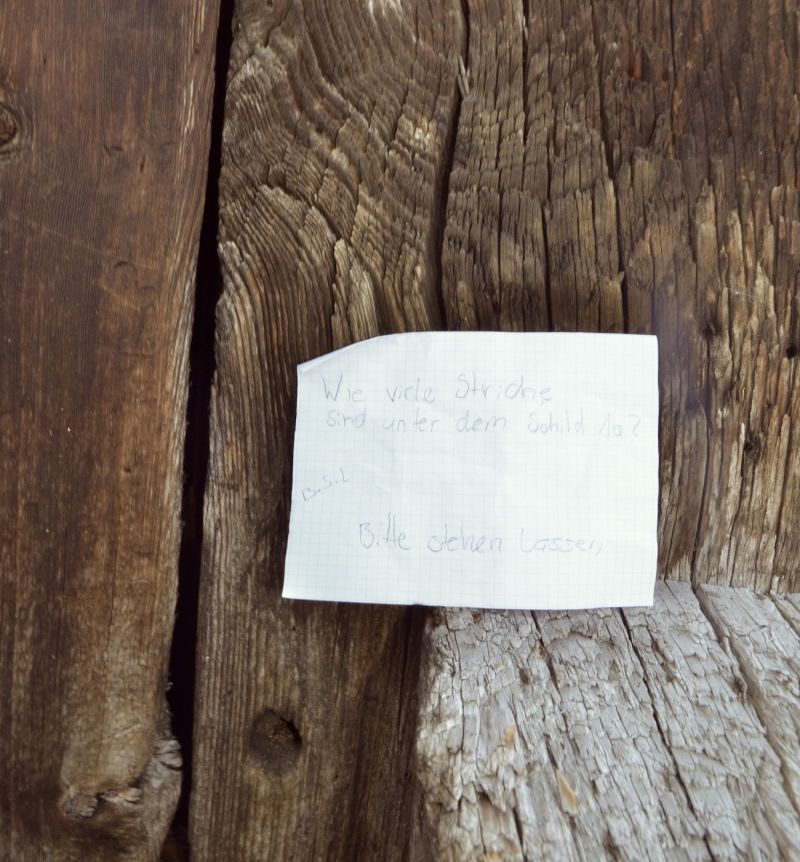 Wie viele Striche
sind unter dem Schild 1a?
B.S.L
Bitte stehen lassen,